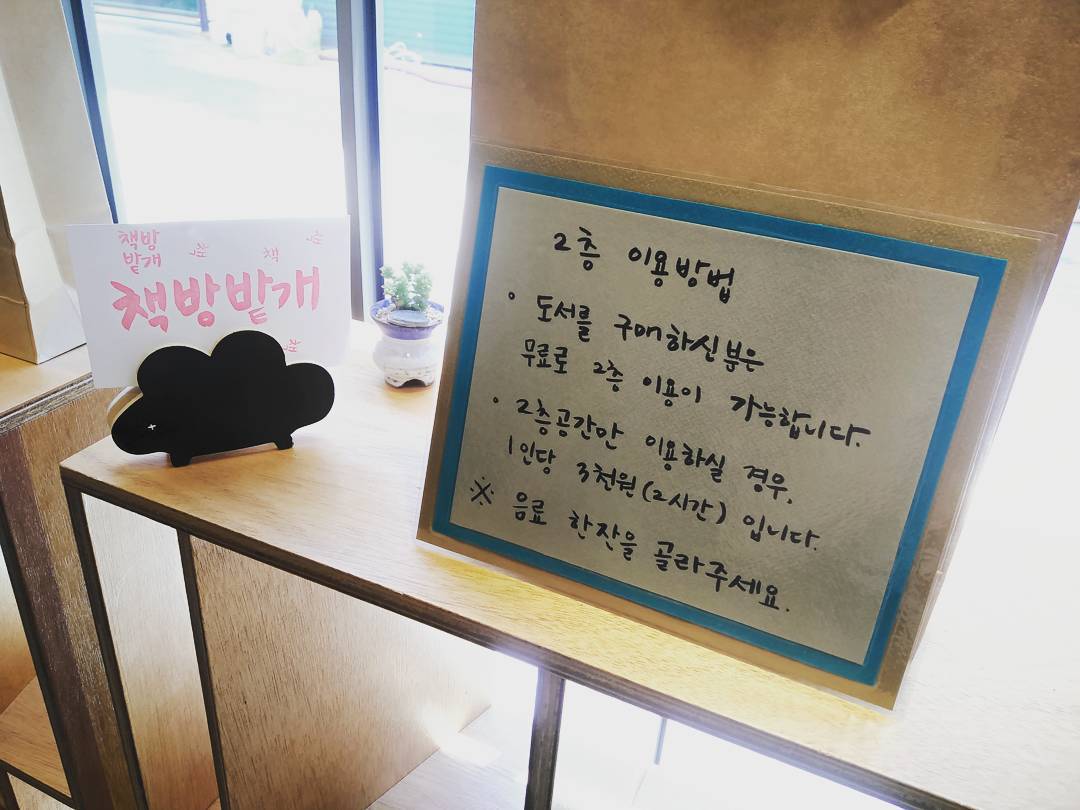 책방
밭개
책
책방밭개
2층 이용방법
• 도서를 구매하신분은
무료로 2층 이용이 가능합니다.
• 2층공간만 이용하실 경우,
1인당 3천원(2시간) 입니다.
※ 음료 한잔을 골라주세요.